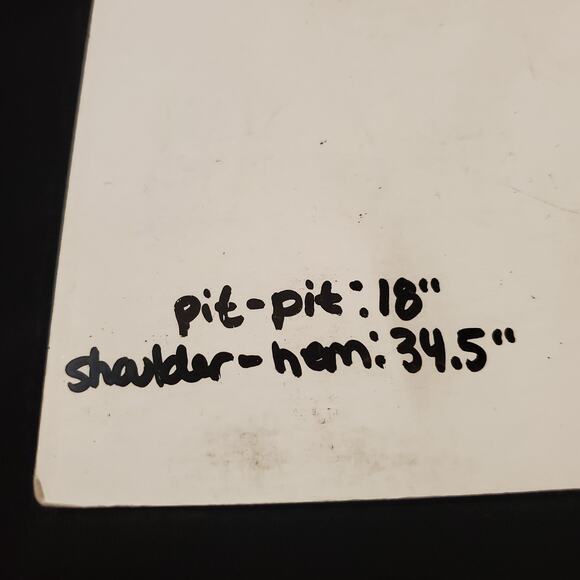 pit-pit: 18"
shoulder-hem: 34.5"